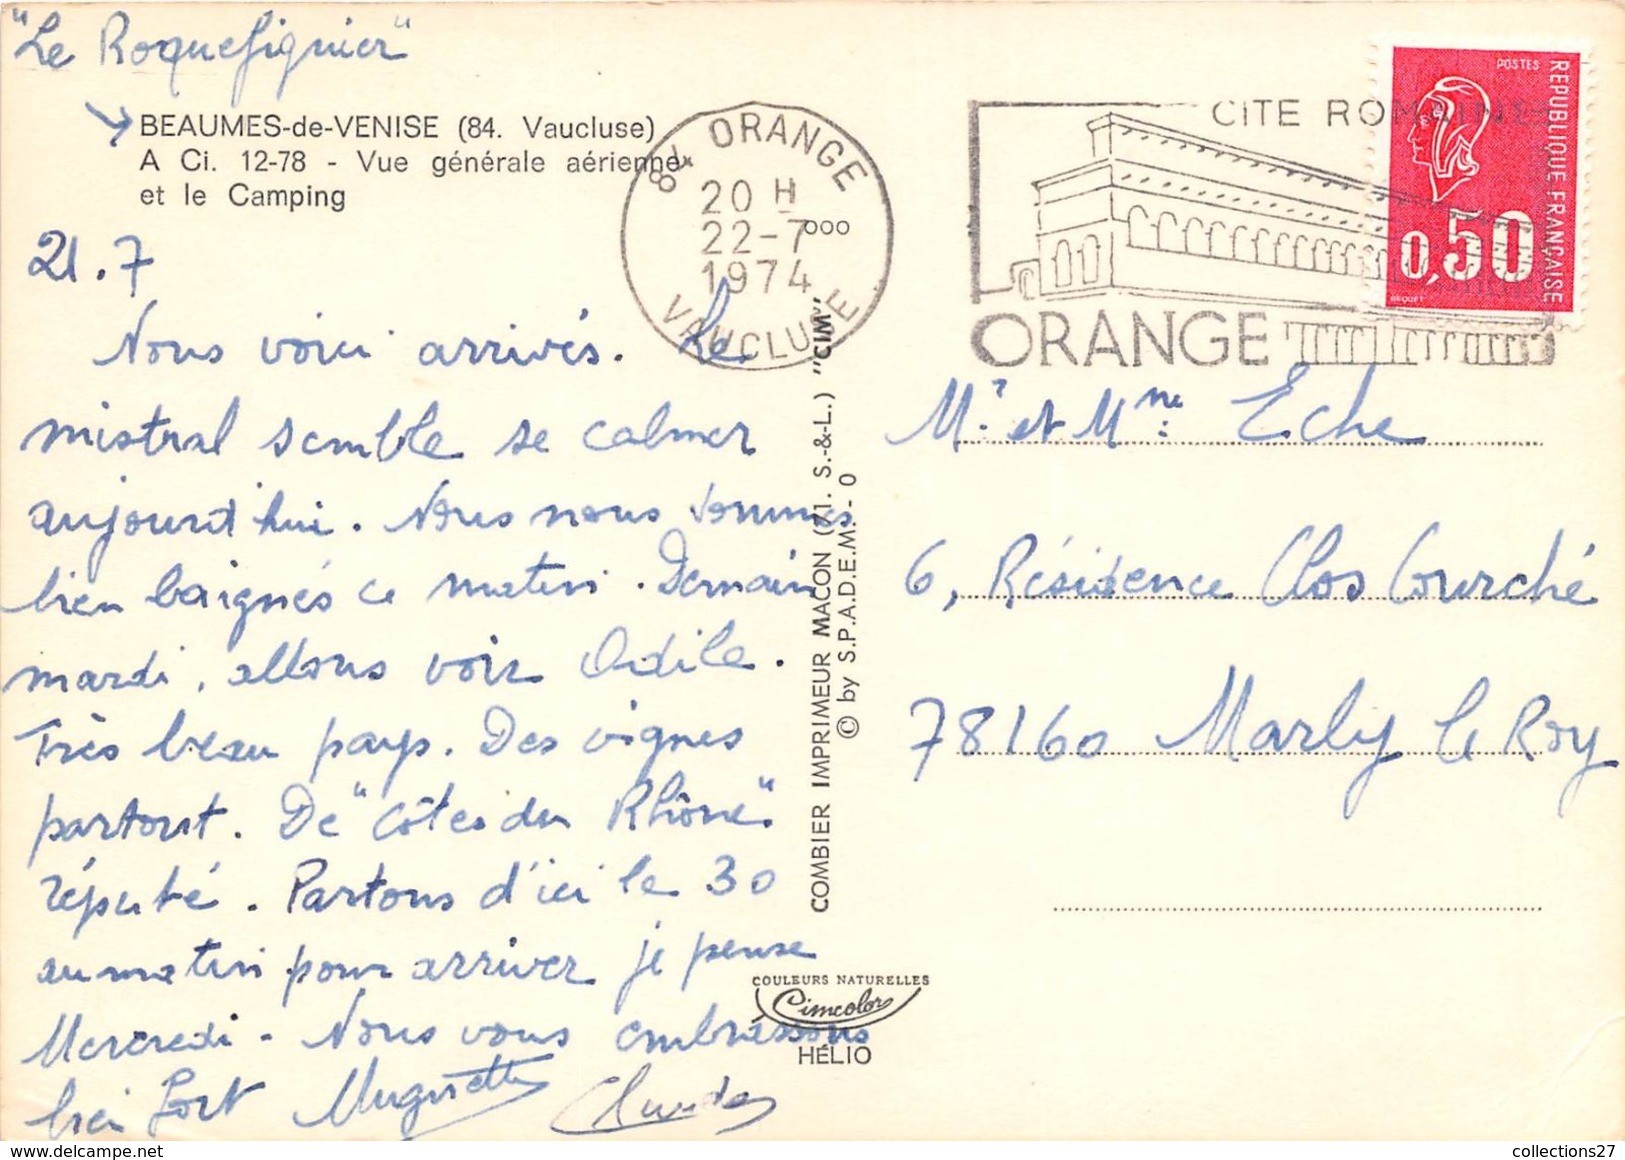 "Le Roquefiguier"
BEAUMES-de-VENISE (84. Vaucluse)
A Ci. 12-78 - Vue générale aérienne
et le Camping
84 ORANGE
20 H
22-7
1974
VAUCLUSE
°°°°
CITE ROMAINE
ORANGE
POSTES
REPUBLIQUE FRANÇAISE
0,50
BEQUET
21.7
Nous voici arrivés. Le
mistral semble se calmer
aujourd'hui. Nous nous sommes
bien baignés ce matin. Demain
mardi, allons voir Odile.
Très beau pays. Des vignes
partout. De "Côtes du Rhône"
réputé. Partons d'ici le 30
au matin pour arriver je pense
Mercredi - Nous vous embrassons
bien fort Muguette Claude
COMBIER IMPRIMEUR MACON (71. S.-&-L.) "CIM"
© by S.P.A.D.E.M. - 0
COULEURS NATURELLES
Cimcolor
HÉLIO
Mr et Mme Eche
6, Résidence Clos Courché
78160 Marly le Roy
collections27